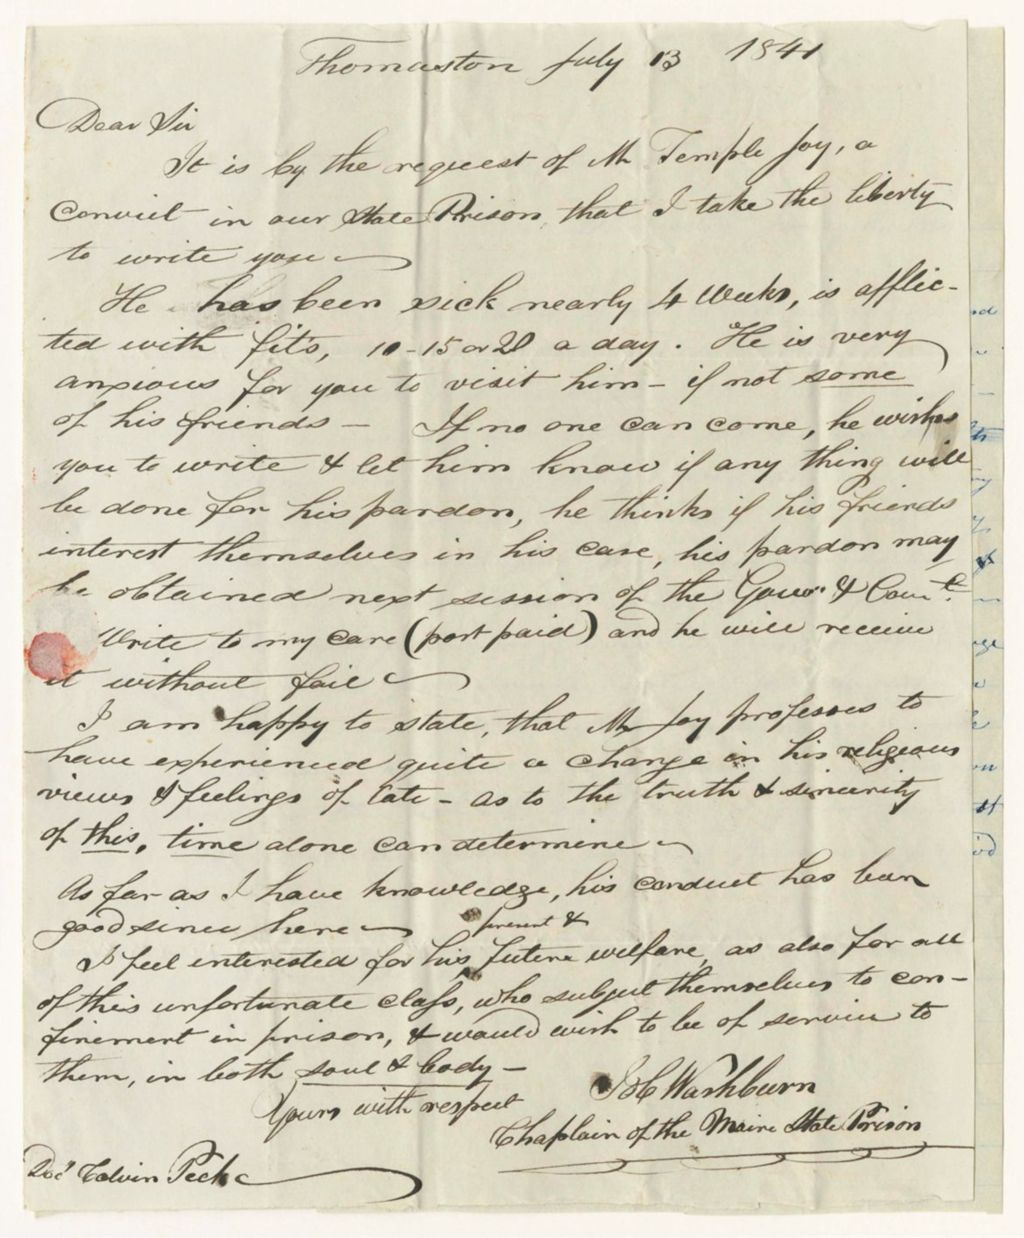 Thomaston July 13 1841
Dear Sir
It is by the request of Mr Temple Joy, a
convict in our State Prison, that I take the liberty
to write you
He has been sick nearly 4 weeks, is afflic-
ted with fits, 10-15 or 20 a day. He is very
anxious for you to visit him - if not some
of his friends - If no one can come, he wishes
you to write & let him know if any thing will
be done for his pardon, he thinks if his friends
interest themselves in his case, his pardon may
be obtained next session of the Govr & Counl.
Write to my care (post paid) and he will receive
it without fail
I am happy to state, that Mr Joy professes to
have experienced quite a change in his religious
views & feelings of late - as to the truth & sincerity
of this, time alone can determine
As far as I have knowledge, his conduct has been
good since here
present &
I feel interested for his future welfare, as also for all
of this unfortunate class, who subject themselves to con-
finement in prison, & would wish to be of service to
them, in both soul & body -
Yours with respect
Washburn
Chaplain of the Maine State Prison
Peck